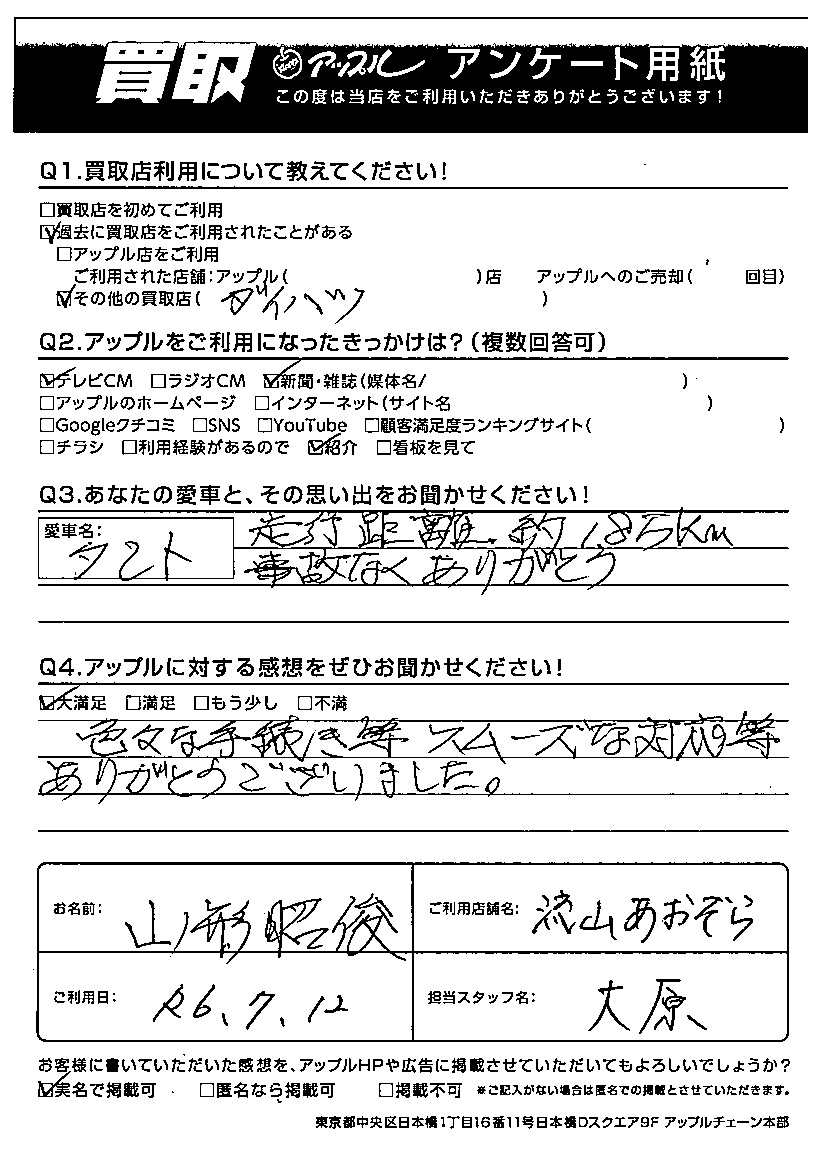 買取 アップル アンケート用紙
この度は当店をご利用いただきありがとうございます！
Q1.買取店利用について教えてください！
□買取店を初めてご利用
☑過去に買取店をご利用されたことがある
□アップル店をご利用
ご利用された店舗：アップル（ ）店 アップルへのご売却（ 回目）
☑その他の買取店（ ダイハツ ）
Q2.アップルをご利用になったきっかけは？（複数回答可）
☑テレビCM □ラジオCM ☑新聞・雑誌（媒体名/ ）
□アップルのホームページ □インターネット（サイト名 ）
□Googleクチコミ □SNS □YouTube □顧客満足度ランキングサイト（ ）
□チラシ □利用経験があるので ☑紹介 □看板を見て
Q3.あなたの愛車と、その思い出をお聞かせください！
愛車名： タント 走行距離 約185km
事故なくありがとう
Q4.アップルに対する感想をぜひお聞かせください！
☑大満足 □満足 □もう少し □不満
色々な手続き等 スムーズな対応等
ありがとうございました。
お名前： 山形昭俊 ご利用店舗名： 流山あおぞら
ご利用日： R6、7、12 担当スタッフ名： 大原
お客様に書いていただいた感想を、アップルHPや広告に掲載させていただいてもよろしいでしょうか？
☑実名で掲載可 □匿名なら掲載可 □掲載不可 ※ご記入がない場合は匿名での掲載とさせていただきます。
東京都中央区日本橋1丁目16番11号日本橋Dスクエア9F アップルチェーン本部